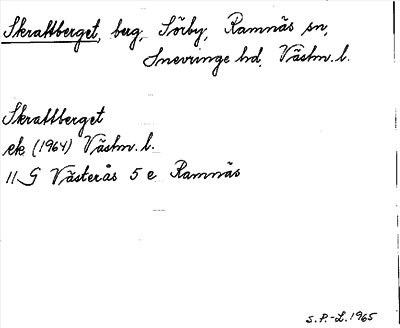 Skrattberget, berg, Sörby, Ramnäs sn,
Snevringe hd, Västm. l.
Skrattberget
ek (1964) Västm. l.
11 G Västerås 5 e Ramnäs
S.P.-L. 1965